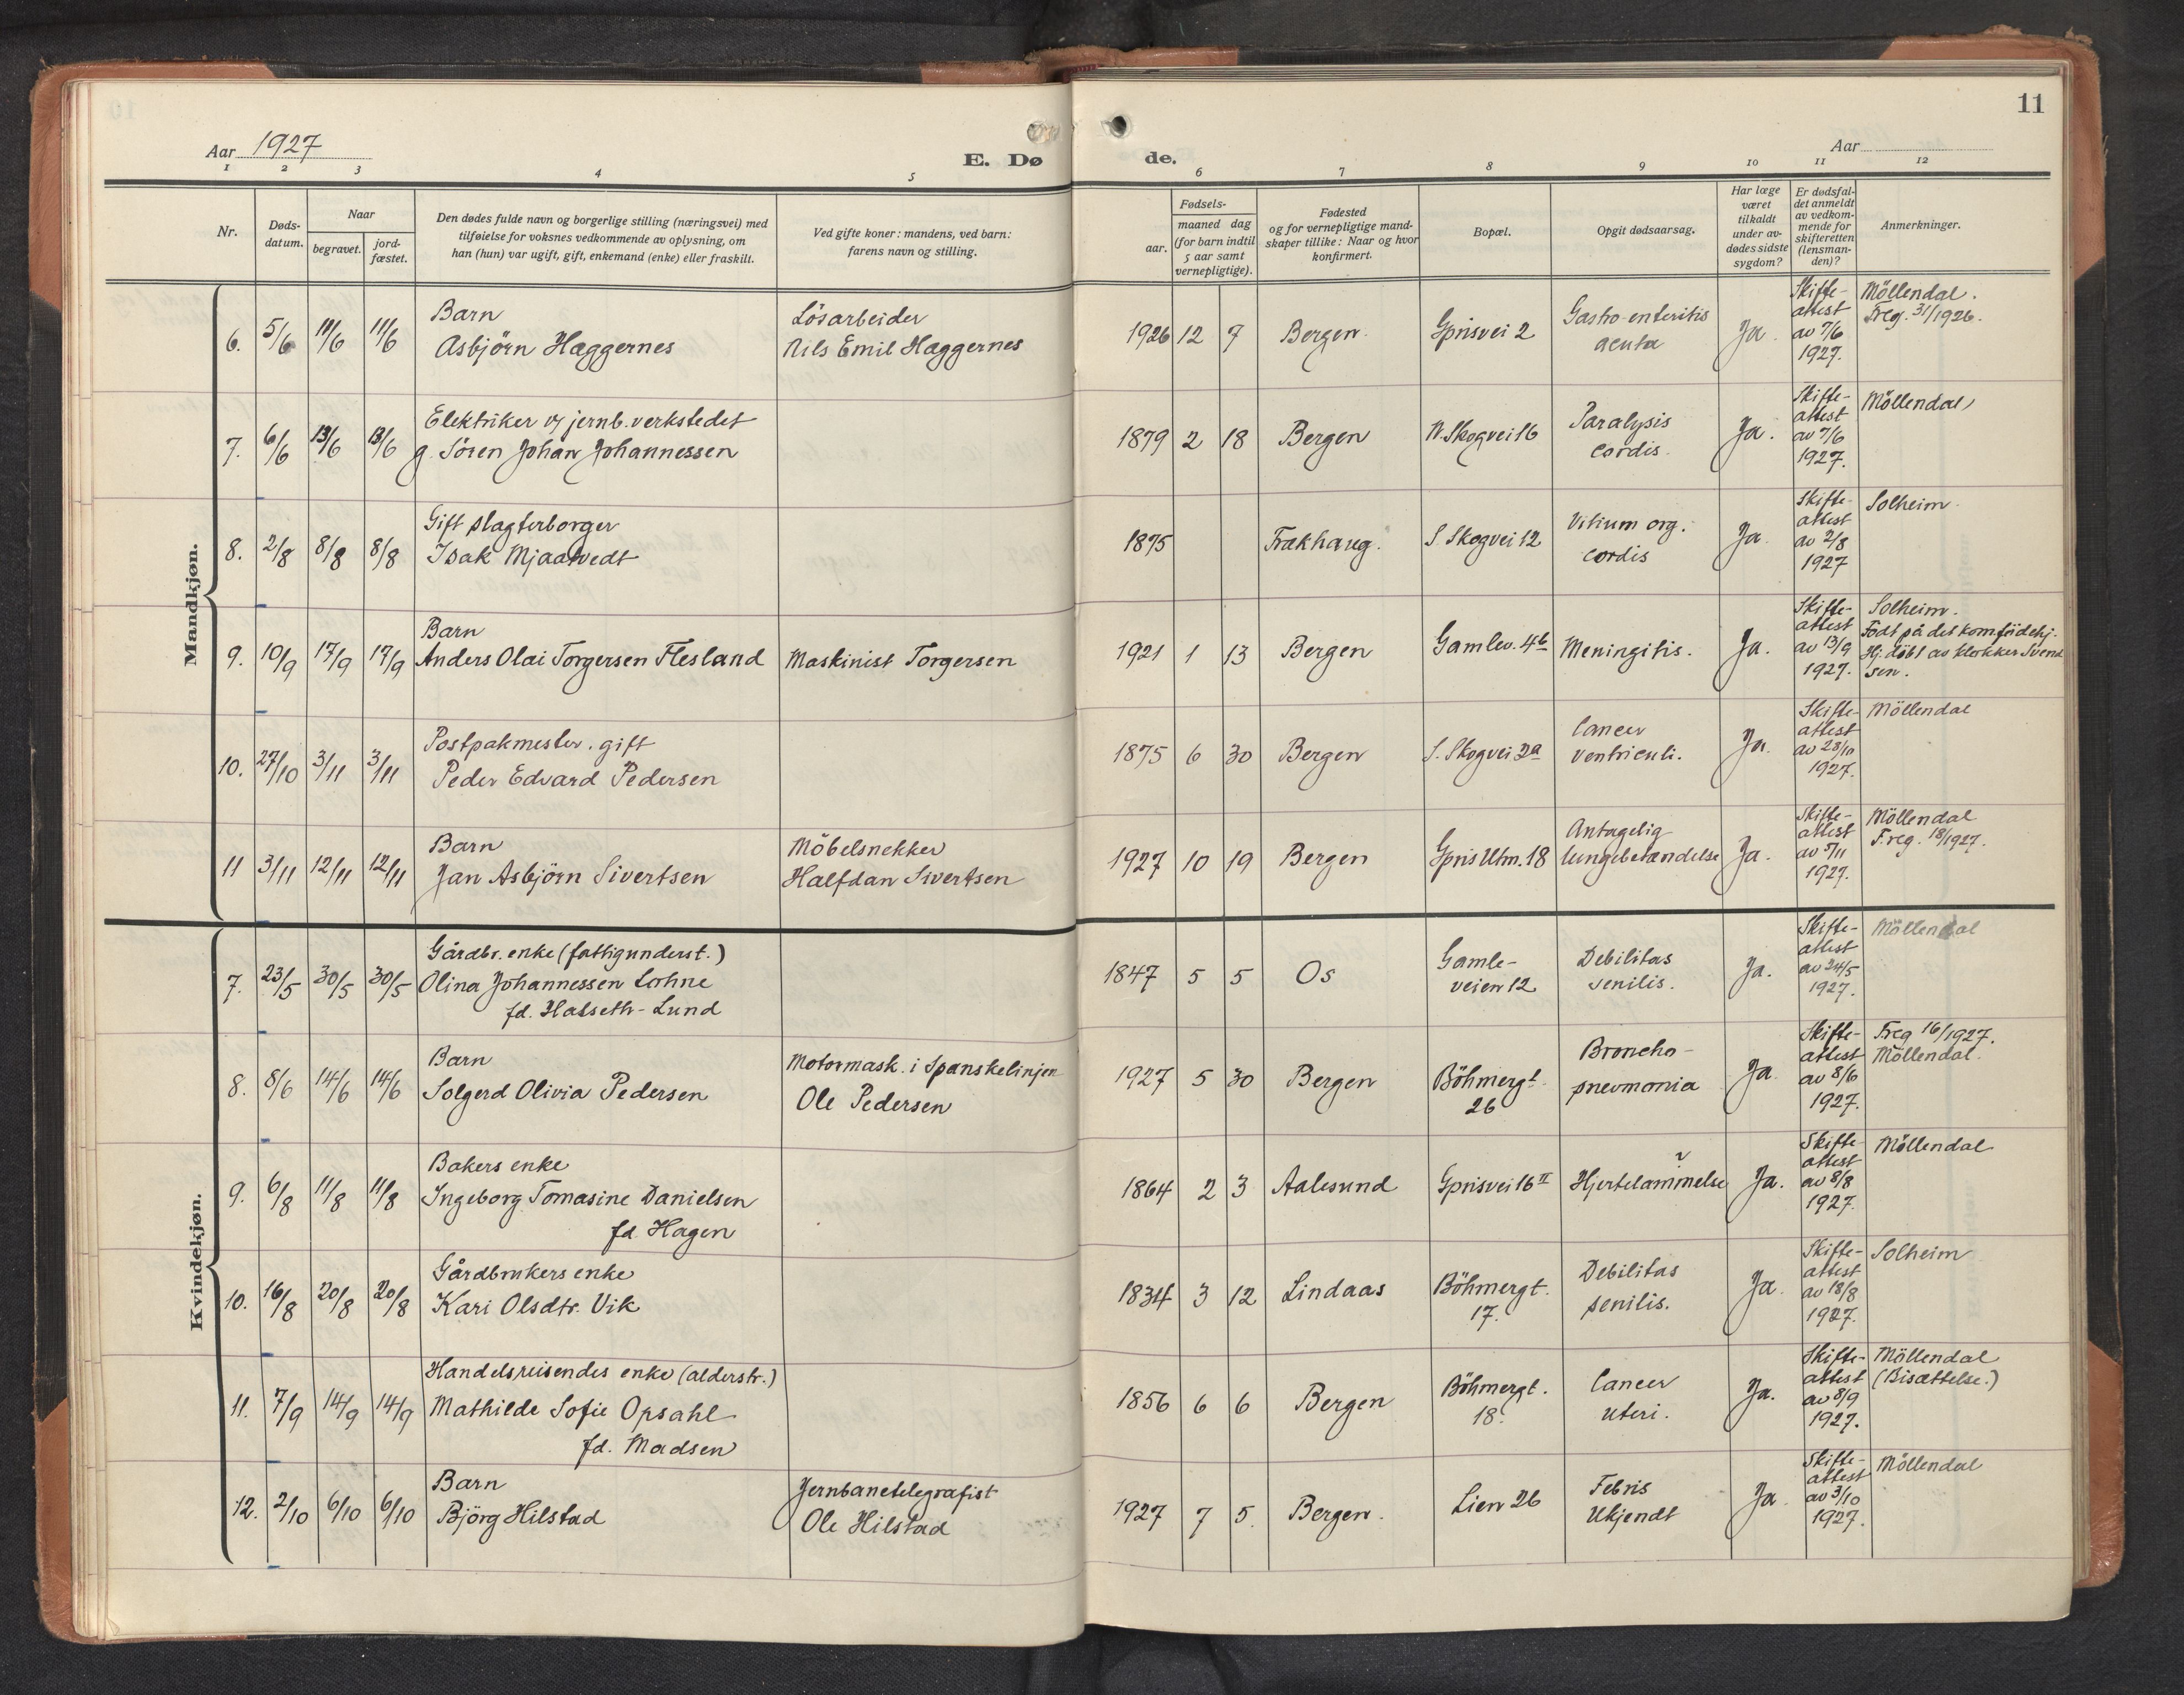 11
Aar 1927
E. Dø
de.
Aar
1 2 3 4 5 6 7 8 9 10 11 12
Nr.
Døds-
datum.
Naar
begravet.
jord-
fæstet.
Den dødes fulde navn og borgerlige stilling (næringsvei) med
tilføielse for voksnes vedkommende av oplysning, om
han (hun) var ugift, gift, enkemand (enke) eller fraskilt.
Ved gifte koner: mandens, ved barn:
farens navn og stilling.
Fødsels-
aar.
maaned dag
(for barn indtil
5 aar samt
vernepligtige).
Fødested
og for vernepligtige mand-
skaper tillike: Naar og hvor
konfirmert.
Bopæl.
Opgit dødsaarsag.
Har læge
været
tilkaldt
under av-
dødes sidste
sygdom?
Er dødsfal-
det anmeldt
av vedkom-
mende for
skifteretten
(lensman-
den)?
Anmerkninger.
Mandkjøn.
6. 5/6 11/6 11/6
Barn
Asbjörn Haggernes
Lösarbeider
Nils Emil Haggernes
1926 12 7 Bergen. Gprisvei 2
Gastro-enteritis
acuta
Ja.
Skifte-
attest
av 7/6
1927.
Möllendal.
Freg. 31/1926.
7. 6/6 13/6 13/6
Elektriker v/ jernb.verkstedet
g. Sören Johan Johannessen
1879 2 18 Bergen N. Skogvei 16
Paralysis
cordis.
Ja.
Skifte-
attest
av 7/6
1927.
Möllendal
8. 2/8 8/8 8/8
Gift slagterborger
Isak Mjaatvedt
1875 Trækhaug. S. Skogvei 12
Vitium org.
cordis
Ja.
Skifte-
attest
av 2/8
1927
Solheim
9. 10/9 17/9 17/9
Barn
Anders Olai Torgersen Flesland
Maskinist Torgersen
1921 1 13 Bergen Gamlev. 4b Meningitis. Ja.
Skifte-
attest
av 13/9
1927.
Solheim.
Födt på det kom. födehj.
Hj. döbt av klokker Svend
sen.
10. 27/10 3/11 3/11
Postpakmester. gift
Peder Edvard Pedersen
1875 6 30 Bergen S. Skogvei 2a
Cancer
ventriculi.
Ja.
Skifte-
attest
av 28/10
1927.
Möllendal
11 3/11 12/11 12/11
Barn
Jan Asbjörn Sivertsen
Möbelsnekker
Halfdan Sivertsen
1927 10 19 Bergen Gpris Utm. 18
Antagelig
lungebetændelse
Ja.
Skifte-
attest
av 5/11
1927.
Möllendal
F.reg. 18/1927.
Kvindekjøn.
7. 23/5 30/5 30/5
Gårdbr. enke (fattigunderst.)
Olina Johannessen Lohne
fd. Halseth-Lund
1847 5 5 Os
Gamle-
veien 12
Debilitas
senilis.
Ja.
Skifte-
attest
av 24/5
1927.
Möllendal
8. 8/6 14/6 14/6
Barn
Solgerd Olivia Pedersen
Motormask. i Spanskelinjen
Ole Pedersen
1927 5 30 Bergen
Böhmergt.
26
Broncho-
pneumonia
Ja
Skifte-
attest
av 8/6
1927.
Freg 16/1927.
Möllendal.
9. 6/8 11/8 11/8
Bakers enke
Ingeborg Tomasine Danielsen
fd. Hagen
1864 2 3 Aalesund Gprisvei 16 II Hjertelammelse Ja.
Skifte-
attest
av 8/8
1927.
Möllendal
10. 16/8 20/8 20/8
Gårdbrukers enke
Kari Olsdtr. Vik
1834 3 12 Lindaas
Böhmergt.
17.
Debilitas
senilis.
Ja.
Skifte-
attest
av 18/8
1927.
Solheim
11. 7/9 14/9 14/9
Handelsreisendes enke (alderstr.)
Mathilde Sofie Opsahl
fd. Madsen
1856 6 6 Bergen
Böhmergt.
18.
Cancer
uteri.
Ja.
Skifte-
attest
av 8/9
1927.
Möllendal
(Bisættelse.)
12. 2/10 6/10 6/10
Barn
Björg Hilstad
Jernbanetelegrafist
Ole Hilstad
1927 7 5. Bergen. Lien 26
Febris
Ukjendt
Ja
Skifte-
attest
av 3/10
1927.
Möllendal